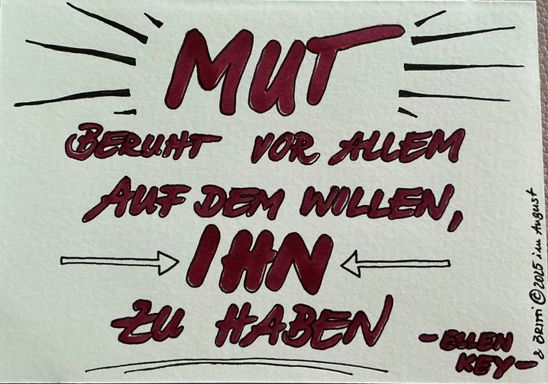 MUT
BERUHT VOR ALLEM
AUF DEM WILLEN,
IHN
ZU HABEN
- ELLEN
KEY -
© 2025 im August